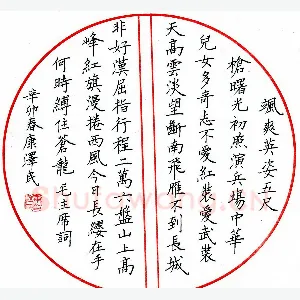 颯爽英姿五尺
槍曙光初照演兵場中華
兒女多奇志不愛紅裝愛武裝
天高雲淡望斷南飛雁不到長城
非好漢屈指行程二萬六盤山上高
峰紅旗漫捲西風今日長纓在手
何時縛住蒼龍毛主席詞
辛卯春康澤民